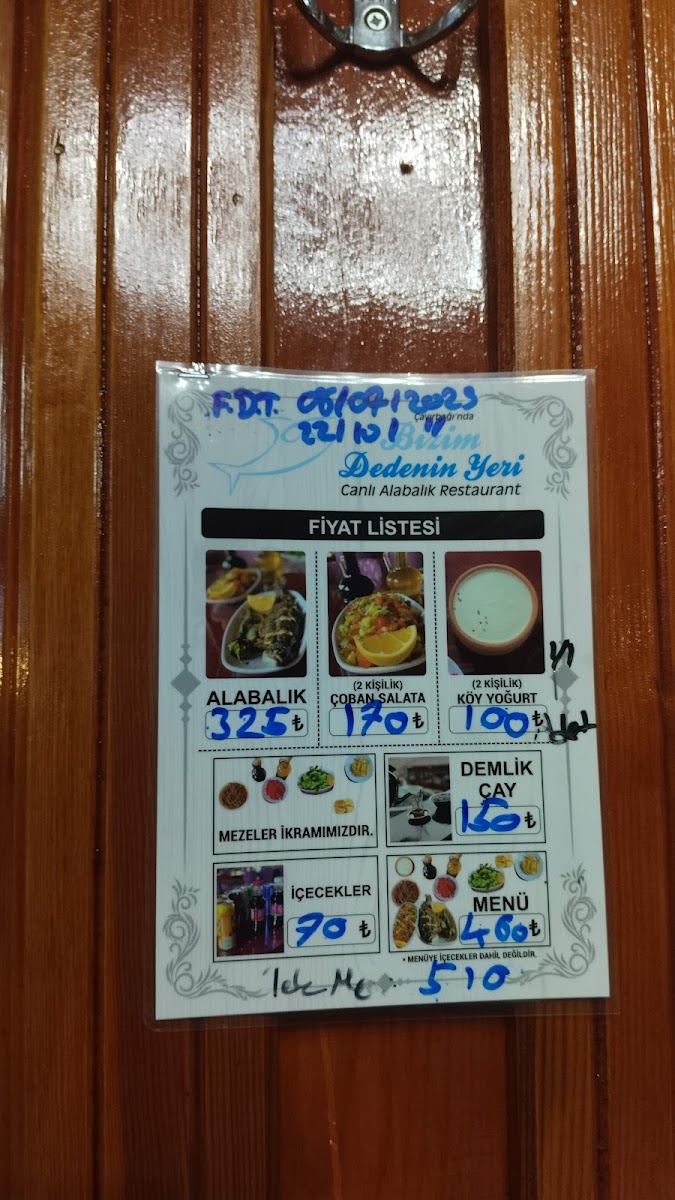 F.D.T. 08/07/2023
22/10/ "
Çayırbağı'nda
Bizim
Dedenin Yeri
Canlı Alabalık Restaurant
FİYAT LİSTESİ
ALABALIK
325 ₺
(2 KİŞİLİK)
ÇOBAN SALATA
170 ₺
(2 KİŞİLİK)
KÖY YOĞURT
100 ₺
MEZELER İKRAMIMIZDIR.
DEMLİK
ÇAY
150 ₺
İÇECEKLER
70 ₺
MENÜ
460 ₺
* MENÜYE İÇECEKLER DAHİL DEĞİLDİR.
510